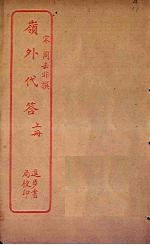 宋 周去非撰
嶺外代答 上冊
進步書
局校印